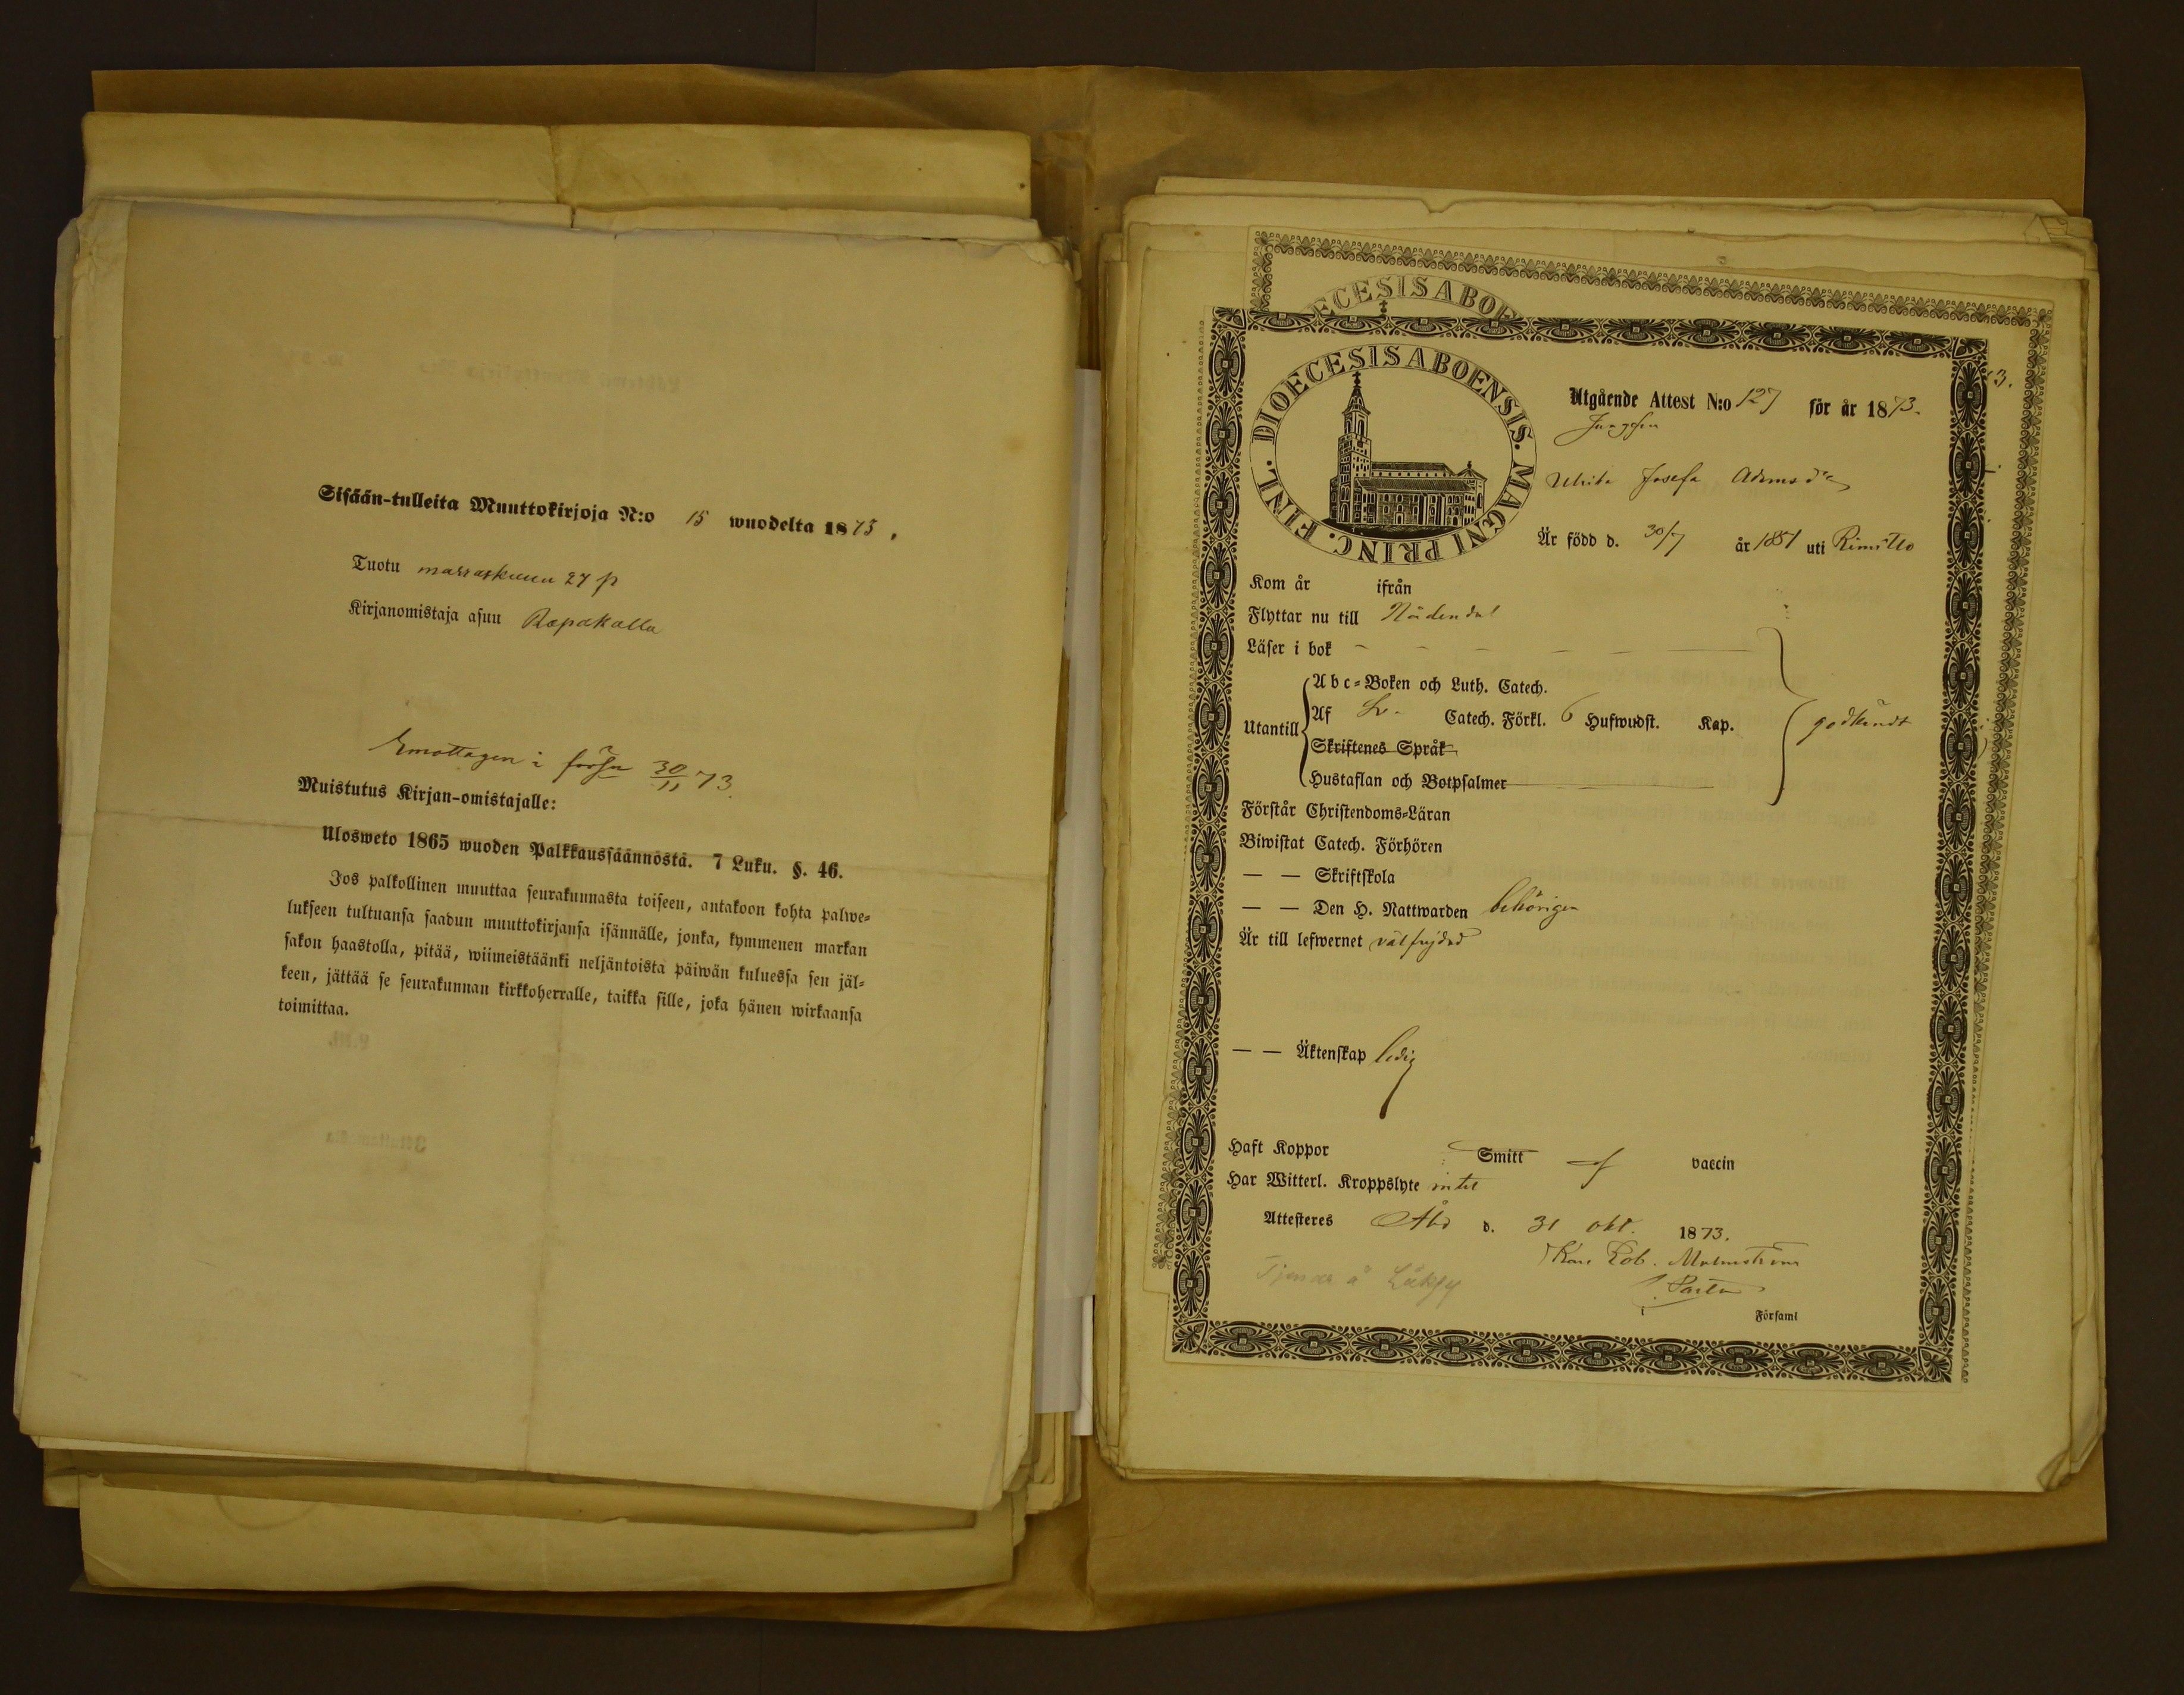 Sisään-tulleita Muuttokirjoja N:o 15 wuodelta 1873.
Tuotu marraskuun 27 p
Kirjanomistaja asuu Rapakalla
Emottagen i 30/11 73.
Muistutus Kirjan-omistajalle:
Ulosweto 1865 wuoden Palkkaussäännöstä. 7 Luku. §. 46.
Jos palkollinen muuttaa seurakunnasta toiseen, antakoon kohta palwe=
lukseen tultuansa saadun muuttokirjansa isännälle, jonka, kymmenen markan
sakon haastolla, pitää, wiimeistäänki neljäntoista päiwän kuluessa sen jäl=
keen, jättää se seurakunnan kirkkoherralle, taikka sille, joka hänen wirkaansa
toimittaa.
ECESIS ABOE
DIOECESIS ABOENSIS. MAGNI PRINC. FINL.
3.
Utgående Attest N:o 127 för år 1873.
Jungfru
Ulrika Josefa Adamsdr
Är född d. 30/7 år 1851 uti Rimitto
Kom år ifrån
Flyttar nu till Nådendal
Läser i bok — — — — —
Abc=Boken och Luth. Catech.
Utantill Af Sv. Catech. Förkl. 6 Hufwudst. Kap. godkändt
Skriftenes Språk
Hustaflan och Botpsalmer
Förstår Christendoms=Läran
Biwistat Catech. Förhören
— — Skriftskola
— — Den H. Nattwarden behörigen
Är till lefwernet välfrejdad
— — Äktenskap ledig
Haft Koppor Smitt af vaccin
Har Witterl. Kroppslyte intet
Attesteres Åbo d. 31 okt. 1873.
Karl Rob. Malmström
Tjenar å
i Församl